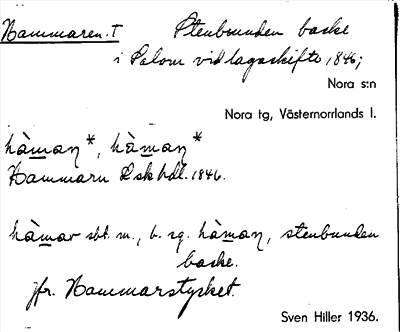 Hammaren. T Stenbunden backe
i Salom vid lagaskifte 1846;
Nora s:n
Nora tg, Västernorrlands l.
hàmaṇ*, hàmaṇ*
Hammarn Lsk hdl. 1846.
hàmar sbt. m., b. sg. hàmaṇ, stenbunden
backe.
jfr. Hammarstycket.
Sven Hiller 1936.